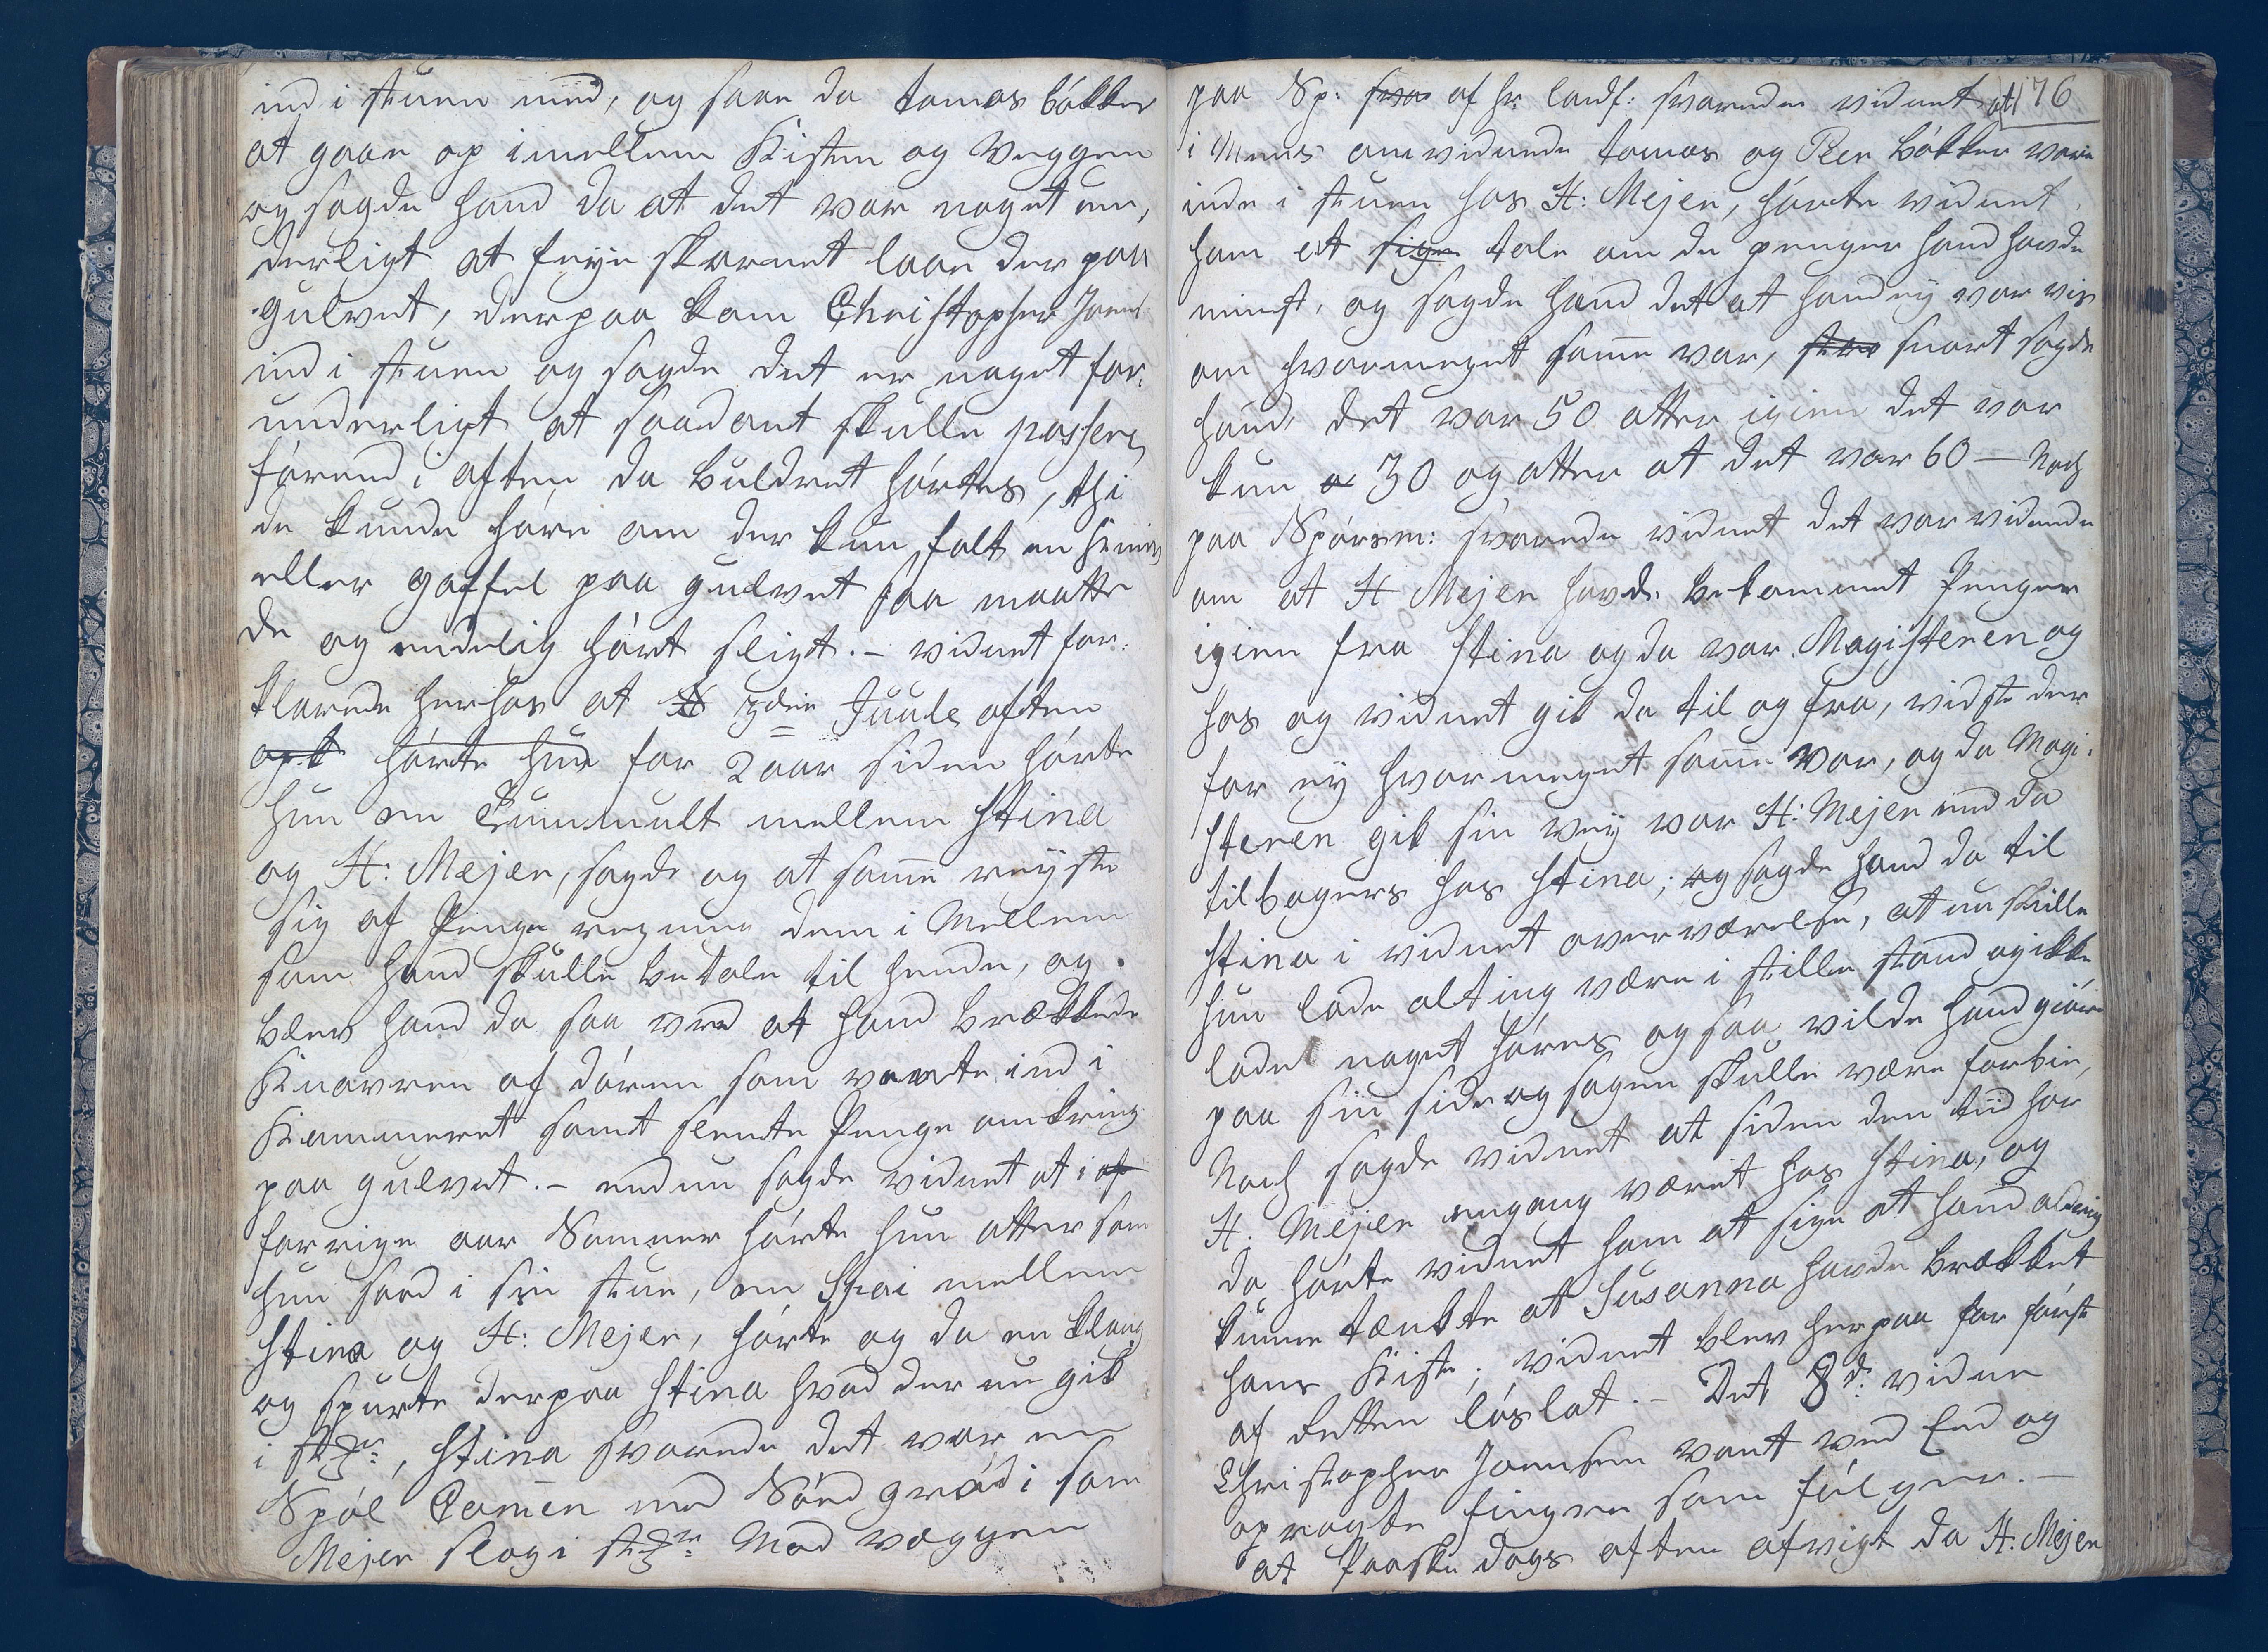 ind i stuen med, og saae da tomas bökker
at gaae op imellem Kisten og Veggen
og sagde hand da at det var noget un,
derligt at feye skarnet laae der paa
gulvet, derpaa kom Christopher Joens
ind i stuen og sagde det er noget for,
underligt at saadant skulle passere,
förend i aften da buldret hörtes, thi
de kunde höre om der kun falt en Kniv
eller gaffel paa gulvet saa maatte
de og endelig hört sligt. – vidnet for,
klarede herhos at H 3die Juule aften
og k hörte hun for 2 aar siden hörte
hun en Tummult mellem Stina
og H: Mejer, sagde og at samme reyste
sig af Penge regning dem i Mellem
som hand skulle betale til hende, og
blev hand da saa vred at hand brækkede
Knavren af dören som vaarte ind i
Kammeret samt slengte Penge omkring
paa gulvet. – endnu sagde vidnet at i af
forrige aar Sommer hörte hun atter som
hun sad i sin stue, en Stoi mellem
Stina og H: Mejer, hörte og da en klang
og spurte derpaa Stina hvad der nu gik
i stÿr, Stina svarede det var en
Spöl Comen med Södgröd i som
Mejer slog i stÿr Mod væggen
paa Sp: svar af hr: landf: svarede vidnet at 176
i Meens omvidnede tomas og Peer bökker vare
inde i stuen hos H: Mejer, hörte vidnet
ham at sige tale om de penger hand havde
mist, og sagde hand det at hand ey var vis
om hvormeget samme var, stra snart sagde
hand det var 50 atter igien det var
kun a 30 og atter at det var 60 – Noch
paa Spörsm: svarede vidnet det var vidende
om at H Mejer havde bekommet Penger
igien fra Stina og da var Magisteren og
hos og vidnet gik da til og fra, vidste der,
for ey hvor meget samme var, og da Magi,
steren gik sin vey var H: Mejer end da
tilbagers hos Stina; og sagde hand da til
Stina i vidnet overværelse, at nu skulle
hun lade alting være i stille stand og ikke
lade noget höres og saa vilde hand giöre
paa sin side og sagen skulle være forbie,
Noch sagde vidnet at siden den tiid har
H. Mejer engang været hos Stina, og
da hörte vidnet ham at sige at hand alddrig
kunne tænkte at Susanna havde brækket
hans Kiste; vidnet blev herpaa for förste
af Retten löslat. – Det 8de vidne
Christopher Joensen vant ved Eed og
opragte finger som fölger. –
at Paaske dags aften afvigt da H. Mejer